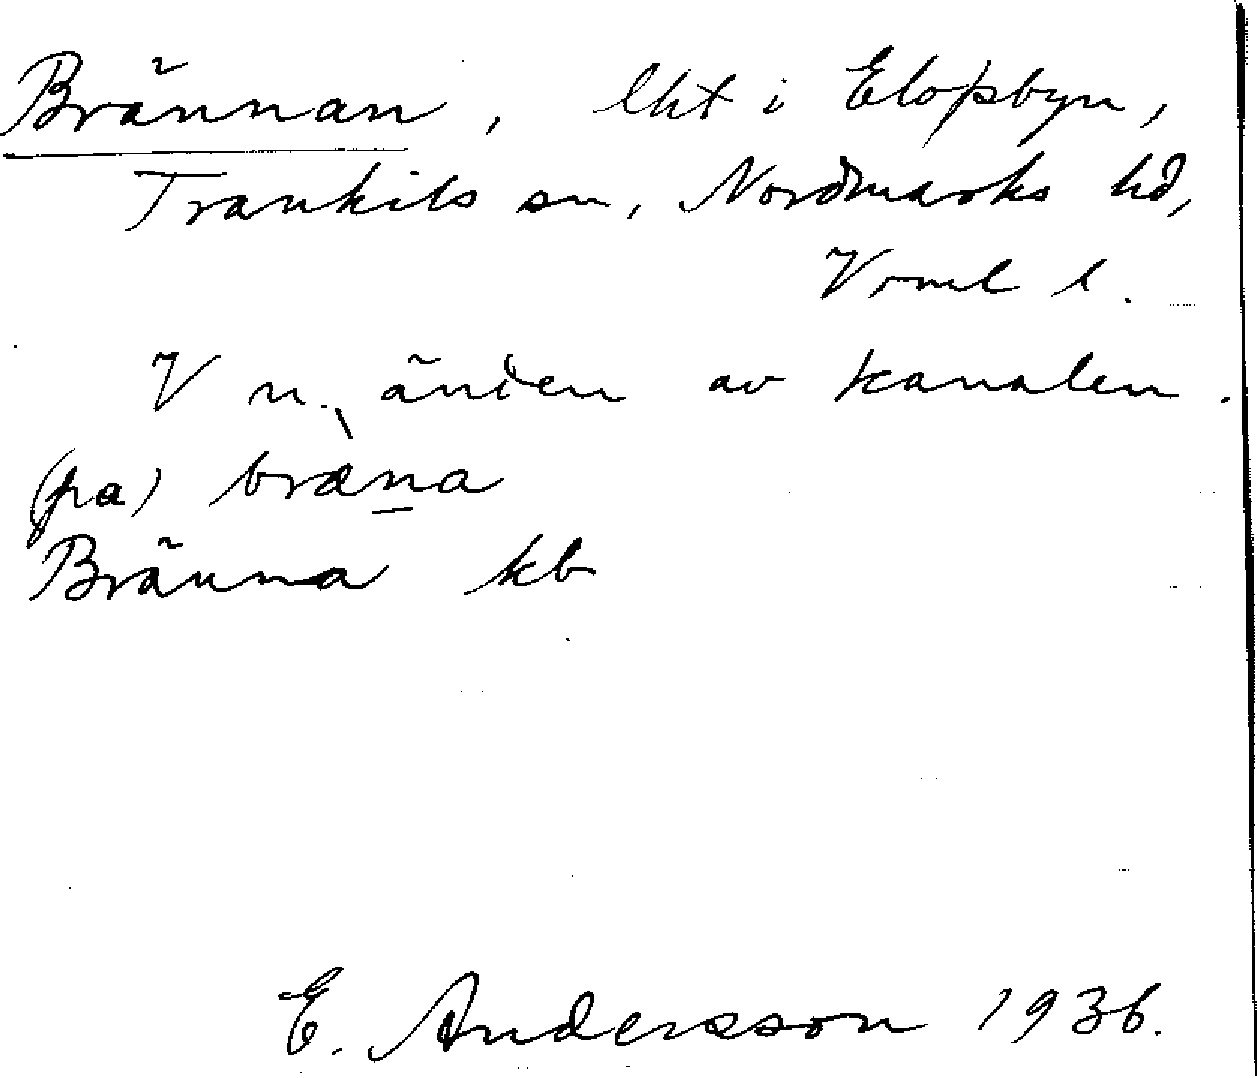 Brännan, lht i Elopsbyn,
Trankils sn, Nordmarks hd,
Vrml l.
V n. änden av kanalen.
(pa) bràna
Bränna kb
E. Andersson 1936.